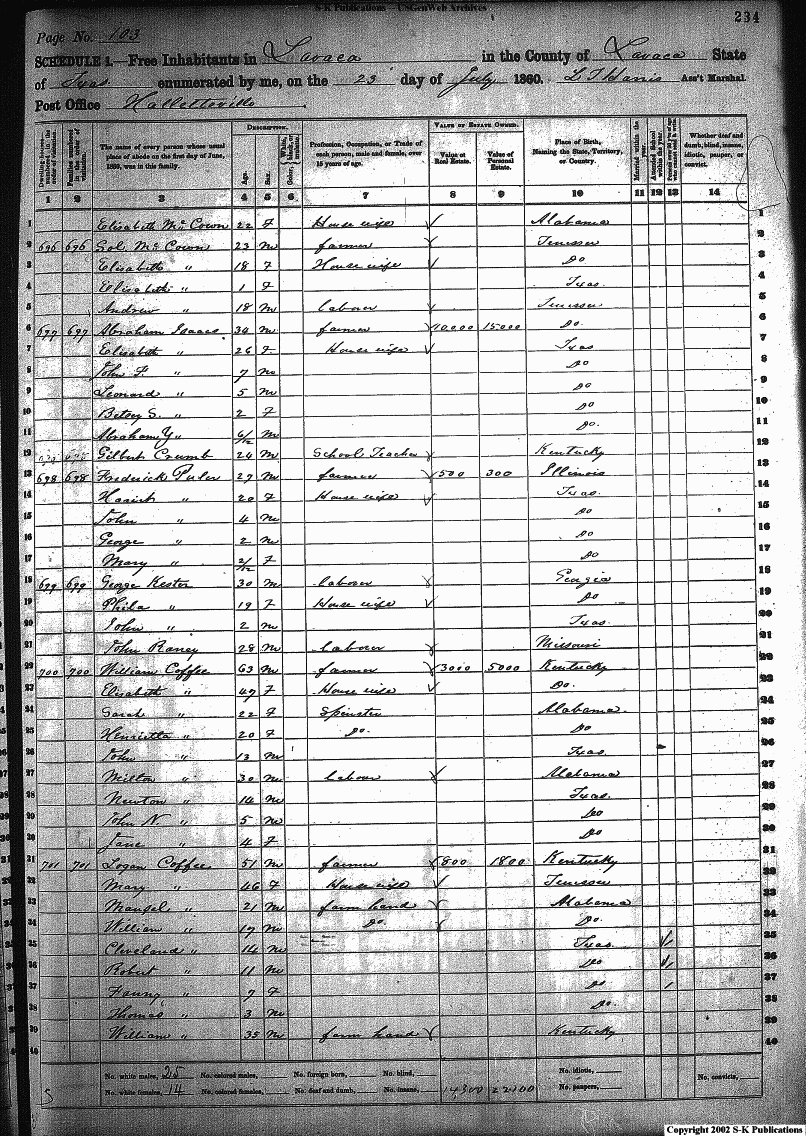 S-K Publications - USGenWeb Archives
234
Page No. 103
SCHEDULE 1.—Free Inhabitants in Lavaca in the County of Lavaca State
of Texas enumerated by me, on the 23 day of July 1860. Ass't Marshal
Post Office Hallettsville
DESCRIPTION. VALUE OF ESTATE OWNED.
The name of every person whose usual place of abode on the first day of June, 1860, was in this family. Age. Sex. Color, White, black, or mulatto. Profession, Occupation, or Trade of each person, male and female, over 15 years of age. Value of Real Estate. Value of Personal Estate. Place of Birth, Naming the State, Territory, or Country. Married within the year. Attended School within the year. Whether deaf and dumb, blind, insane, idiotic, pauper, or convict.
1 2 3 4 5 6 7 8 9 10 11 12 13 14
1 Elisabeth McCown 22 F House wife Alabama 1
2 696 696 Sol McCown 23 M farmer Tenessee 2
3 Elisabeth " 18 F House wife Do 3
4 Elisabeth " 1 F Texas. 4
5 Andrew " 18 M labourer Tenessee 5
6 697 697 Abraham Isaacs 34 M farmer 10000 15000 Do. 6
7 Elisabeth " 26 F House wife Texas 7
8 John F. " 7 M Do 8
9 Leonard " 5 M Do 9
10 Betsy S. " 2 F Do 10
11 Abraham Y " 6/12 M Do. 11
12 Gilbert Crumb 24 M School Teacher Kentucky 12
13 698 698 Frederick 27 M farmer 500 300 Illinois 13
14 " 20 F House wife Texas. 14
15 John " 4 M Do 15
16 George " 2 M Do 16
17 Mary " 2/12 F Do 17
18 699 699 George Kester 30 M labourer Georgia 18
19 Phila " 19 F House wife Do 19
20 John " 2 M Texas. 20
21 John Raney 28 M labourer Missouri 21
22 700 700 William Coffee 63 M farmer 3000 5000 Kentucky 22
23 Elisabeth " 47 F House wife Do. 23
24 Sarah " 22 F Spinster Alabama. 24
25 Henrietta " 20 F Do. Do 25
26 John " 13 M Texas. 26
27 Milton " 30 M labour Alabama 27
28 Newton " 14 M Texas. 28
29 John N. " 5 M Do 29
30 Jane " 4 F Do 30
31 701 701 Logan Coffee 51 M farmer 800 1800 Kentucky 31
32 Mary " 46 F House wife Tenessee 32
33 " 21 M farm hand Alabama 33
34 William " 19 M Do. Do. 34
35 Cleveland " 14 M Texas 35
36 Robert " 11 M Do 36
37 " 7 F Do 37
38 Thomas " 3 M Do. 38
39 William " 35 M farm hand Kentucky 39
40 40
No. white males, 25 No. colored males, No. foreign born, No. blind, No. idiotic,
No. white females, 14 No. colored females, No. deaf and dumb, No. insane, 14300 22100 No. paupers, No. convicts,
Copyright 2002 S-K Publications